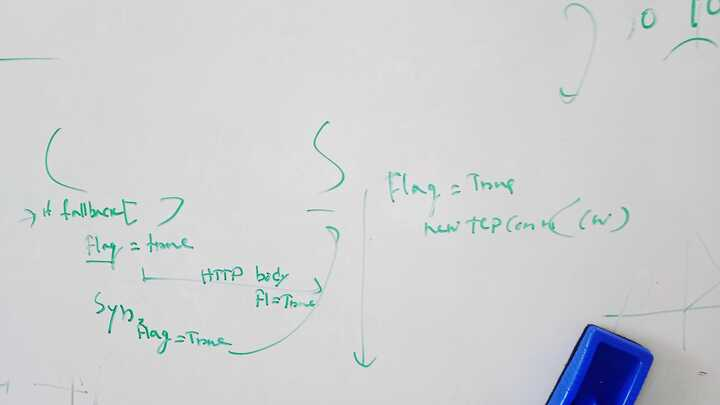 C
S
if fallback [ ]
flag = true
HTTP body
Fl = True
Syn,
Flag = True
Flag = True
new tcp conn (cw)
10